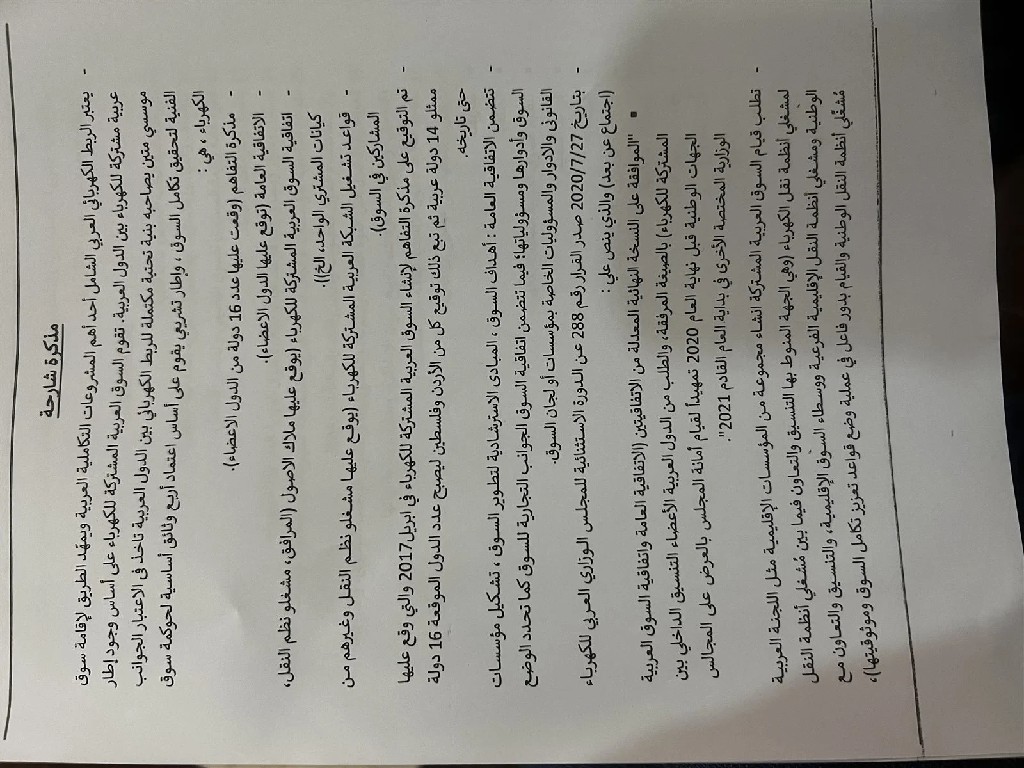 مذكرة شارحة
- يعتبر الربط الكهربائي العربي الشامل أحد أهم المشروعات التكاملية العربية ويمهد الطريق لإقامة سوق
عربية مشتركة للكهرباء بين الدول العربية تقوم السوق العربية المشتركة للكهرباء على أساس وجود إطار
مؤسسي متين يصاحبه بنية تحتية مكتملة للربط الكهربائي بين الدول العربية تاخذ في الاعتبار الجوانب
الفنية لتحقيق تكامل السوق ، وإطار تشريعي يقوم على أساس اعتماد أربع وثائق أساسية لحوكمة سوق
الكهرباء ، هي :
- مذكرة التفاهم (وقعت عليها عدد 16 دولة من الدول الاعضاء).
- الاتفاقية العامة (توقع عليها الدول الاعضاء).
- اتفاقية السوق العربية المشتركة للكهرباء (يوقع عليها ملاك الاصول (المرافق، مشغلو نظم النقل،
كيانات المشتري الواحد،الخ)).
- قواعد تشغيل الشبكة العربية المشتركة للكهرباء (يوقع عليها مشغلو نظم النقل وغيرهم من
المشاركين في السوق).
- تم التوقيع على مذكرة التفاهم لإنشاء السوق العربية المشتركة للكهرباء في ابريل 2017 والتي وقع عليها
ممثلو 14 دولة عربية ثم تبع ذلك توقيع كل من الأردن وفلسطين ليصبح عدد الدول الموقعة 16 دولة
حتى تاريخه.
- تتضمن الاتفاقية العامة : أهداف السوق ، المبادئ الاسترشادية لتطوير السوق ، تشكيل مؤسسات
السوق وأدوارها ومسؤولياتها؛ فيما تتضمن اتفاقية السوق الجوانب التجارية للسوق كما تحدد الوضع
القانوني والادوار والمسؤوليات الخاصة بمؤسسات أو لجان السوق.
- بتاريخ 2020/7/27 صدر القرار رقم 288 عن الدورة الاستثنائية للمجلس الوزاري العربي للكهرباء
(اجتماع عن بعد) والذي ينص على :
▪ "الموافقة على النسخة النهائية المعدلة من الاتفاقيتين (الاتفاقية العامة واتفاقية السوق العربية
المشتركة للكهرباء) بالصيغة المرفقة، والطلب من الدول العربية الأعضاء التنسيق الداخلي بين
الجهات الوطنية قبل نهاية العام 2020 تمهيداً لقيام أمانة المجلس بالعرض على المجالس
الوزارية المختصة الأخرى في بداية العام القادم 2021".
- تطلب قيام السوق العربية المشتركة انشاء مجموعة من المؤسسات الإقليمية مثل اللجنة العربية
لمشغلي أنظمة نقل الكهرباء (وهي الجهة المنوط بها التنسيق والتعاون فيما بين مُشغلي أنظمة النقل
الوطنية ومشغلي أنظمة النقل الإقليمية الفرعية ووسطاء السوق الإقليمية، والتنسيق والتعاون مع
مُشغّلي أنظمة النقل الوطنية والقيام بدور فاعل في عملية وضع قواعد تعزيز تكامل السوق وموثوقيتها)،